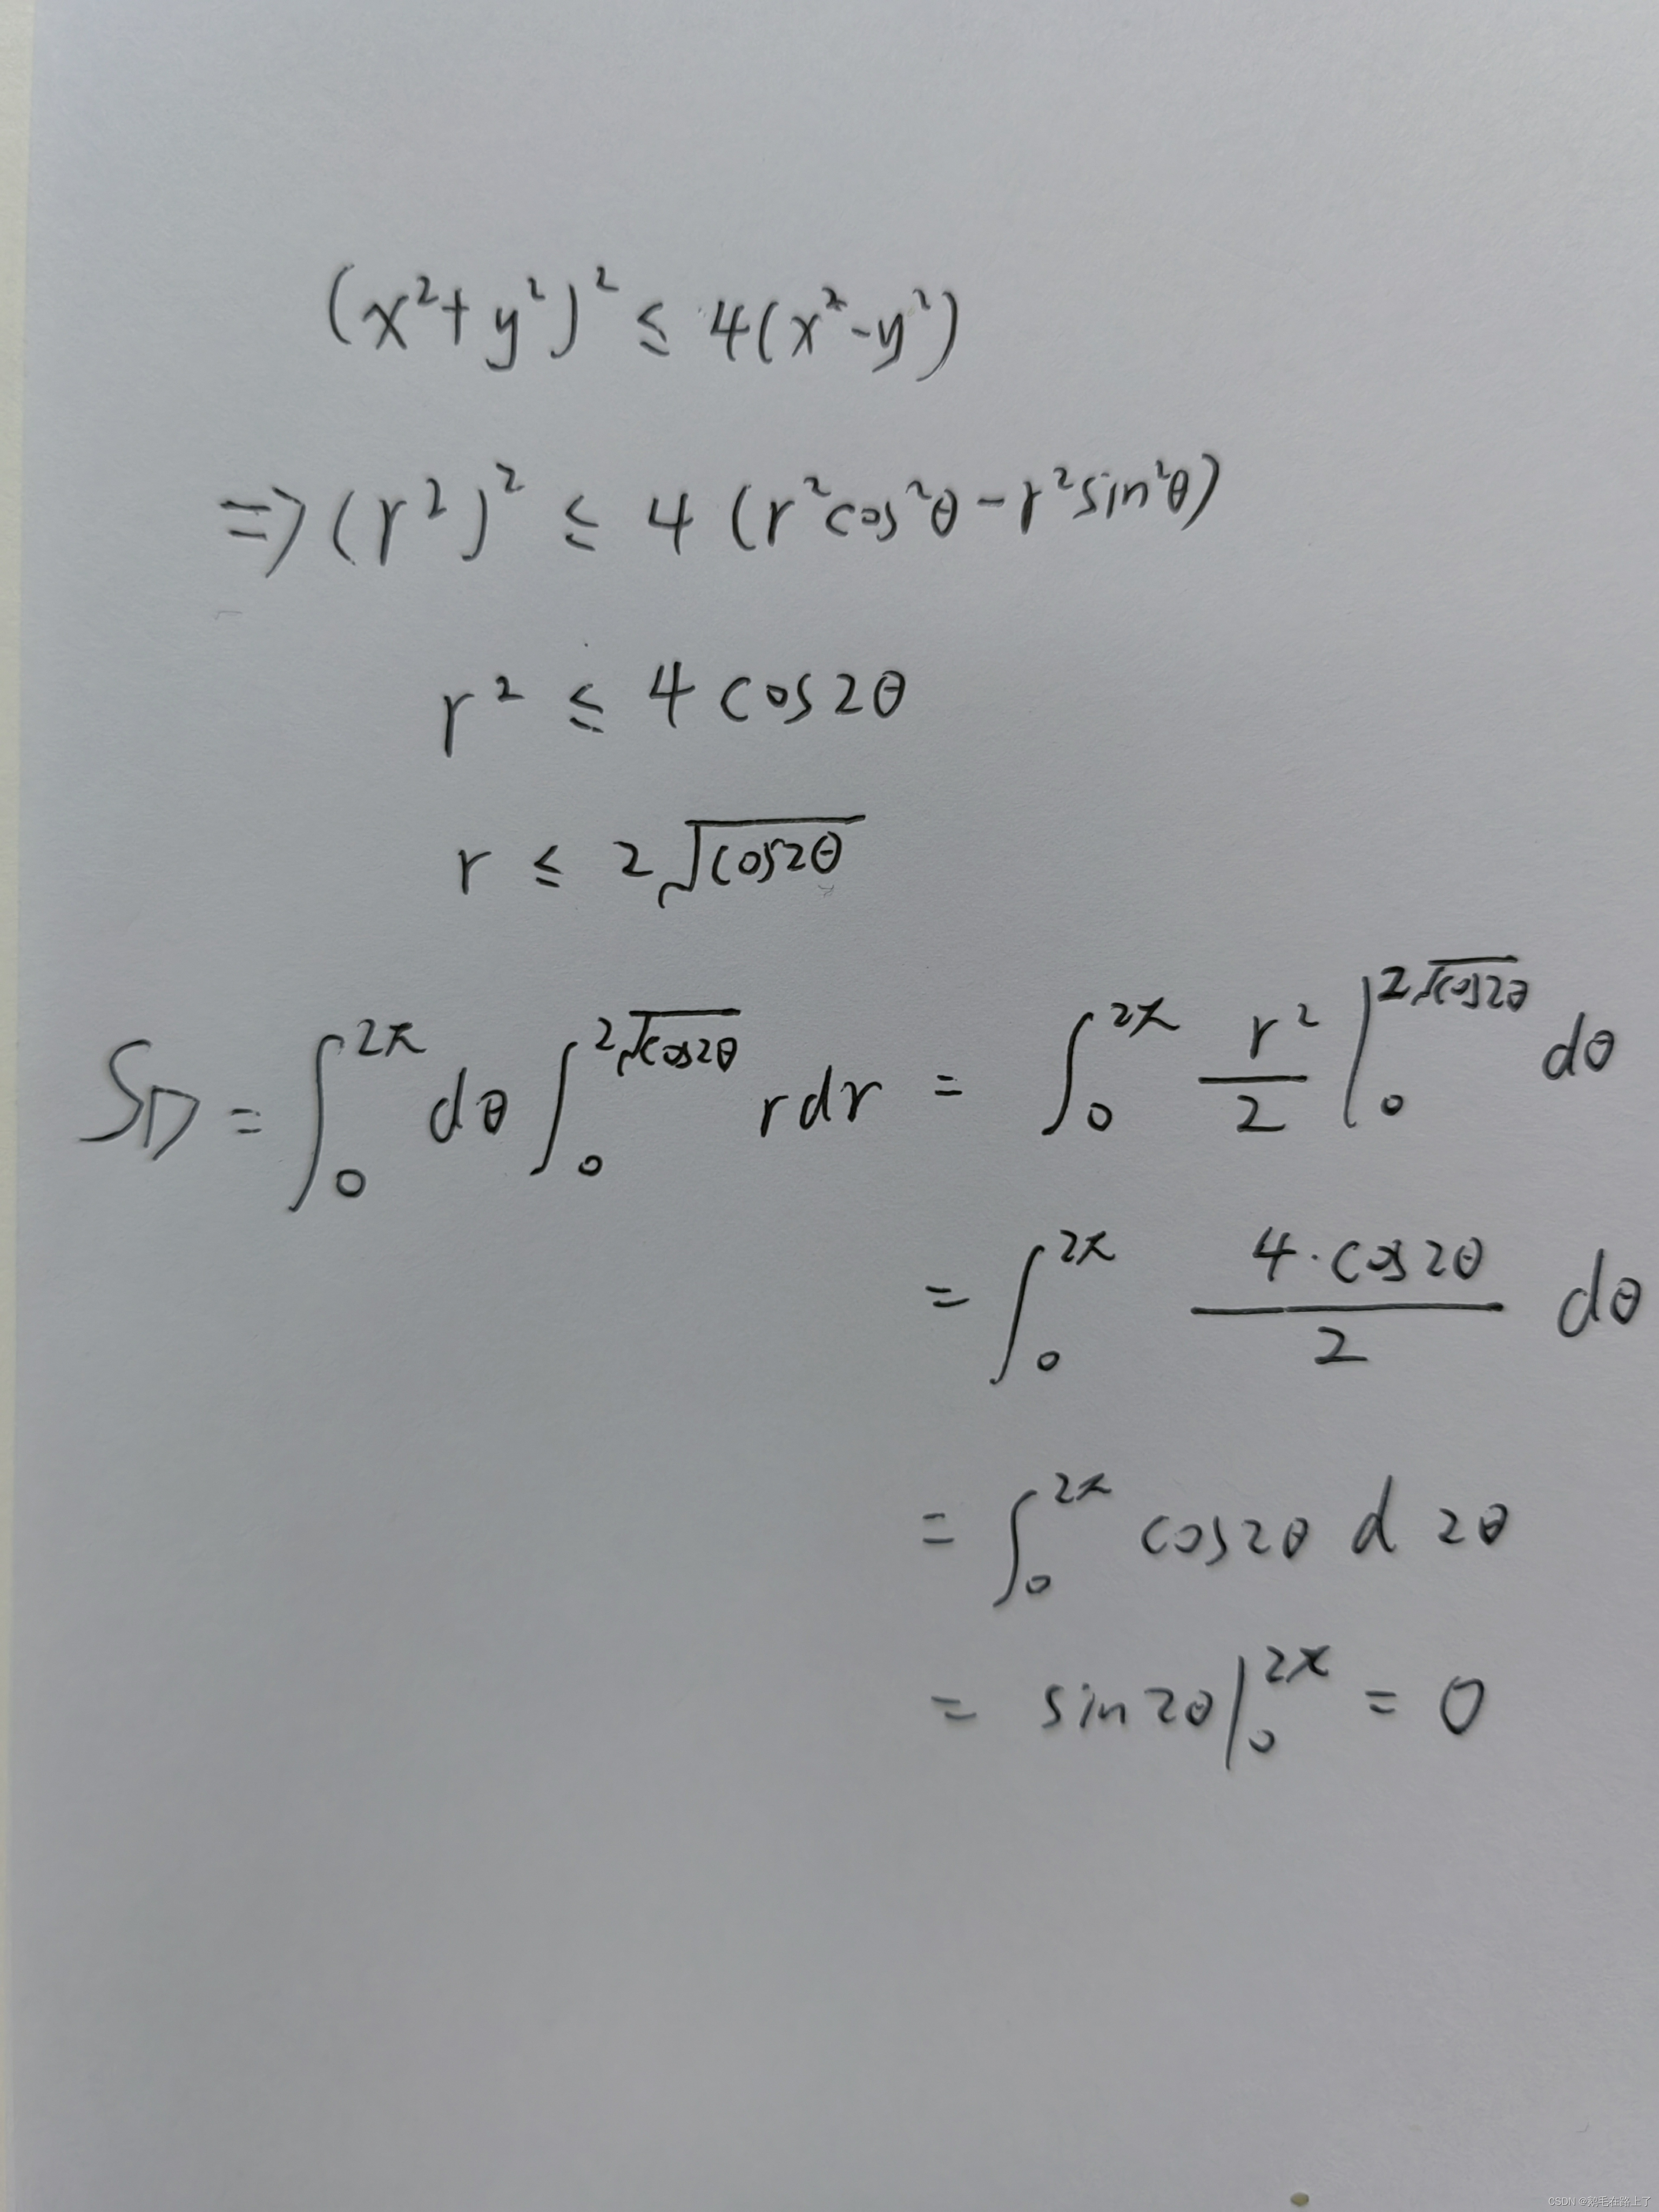 (x²+y²)² ≤ 4(x²-y²)
⇒(r²)² ≤ 4(r²cos²θ-r²sin²θ)
r² ≤ 4cos2θ
r ≤ 2√cos2θ
S_D = ∫₀^{2π} dθ ∫₀^{2√cos2θ} rdr = ∫₀^{2π} r²/2 |₀^{2√cos2θ} dθ
= ∫₀^{2π} 4·cos2θ/2 dθ
= ∫₀^{2π} cos2θ d 2θ
= sin2θ|₀^{2π} = 0
CSDN @鹅毛在路上了